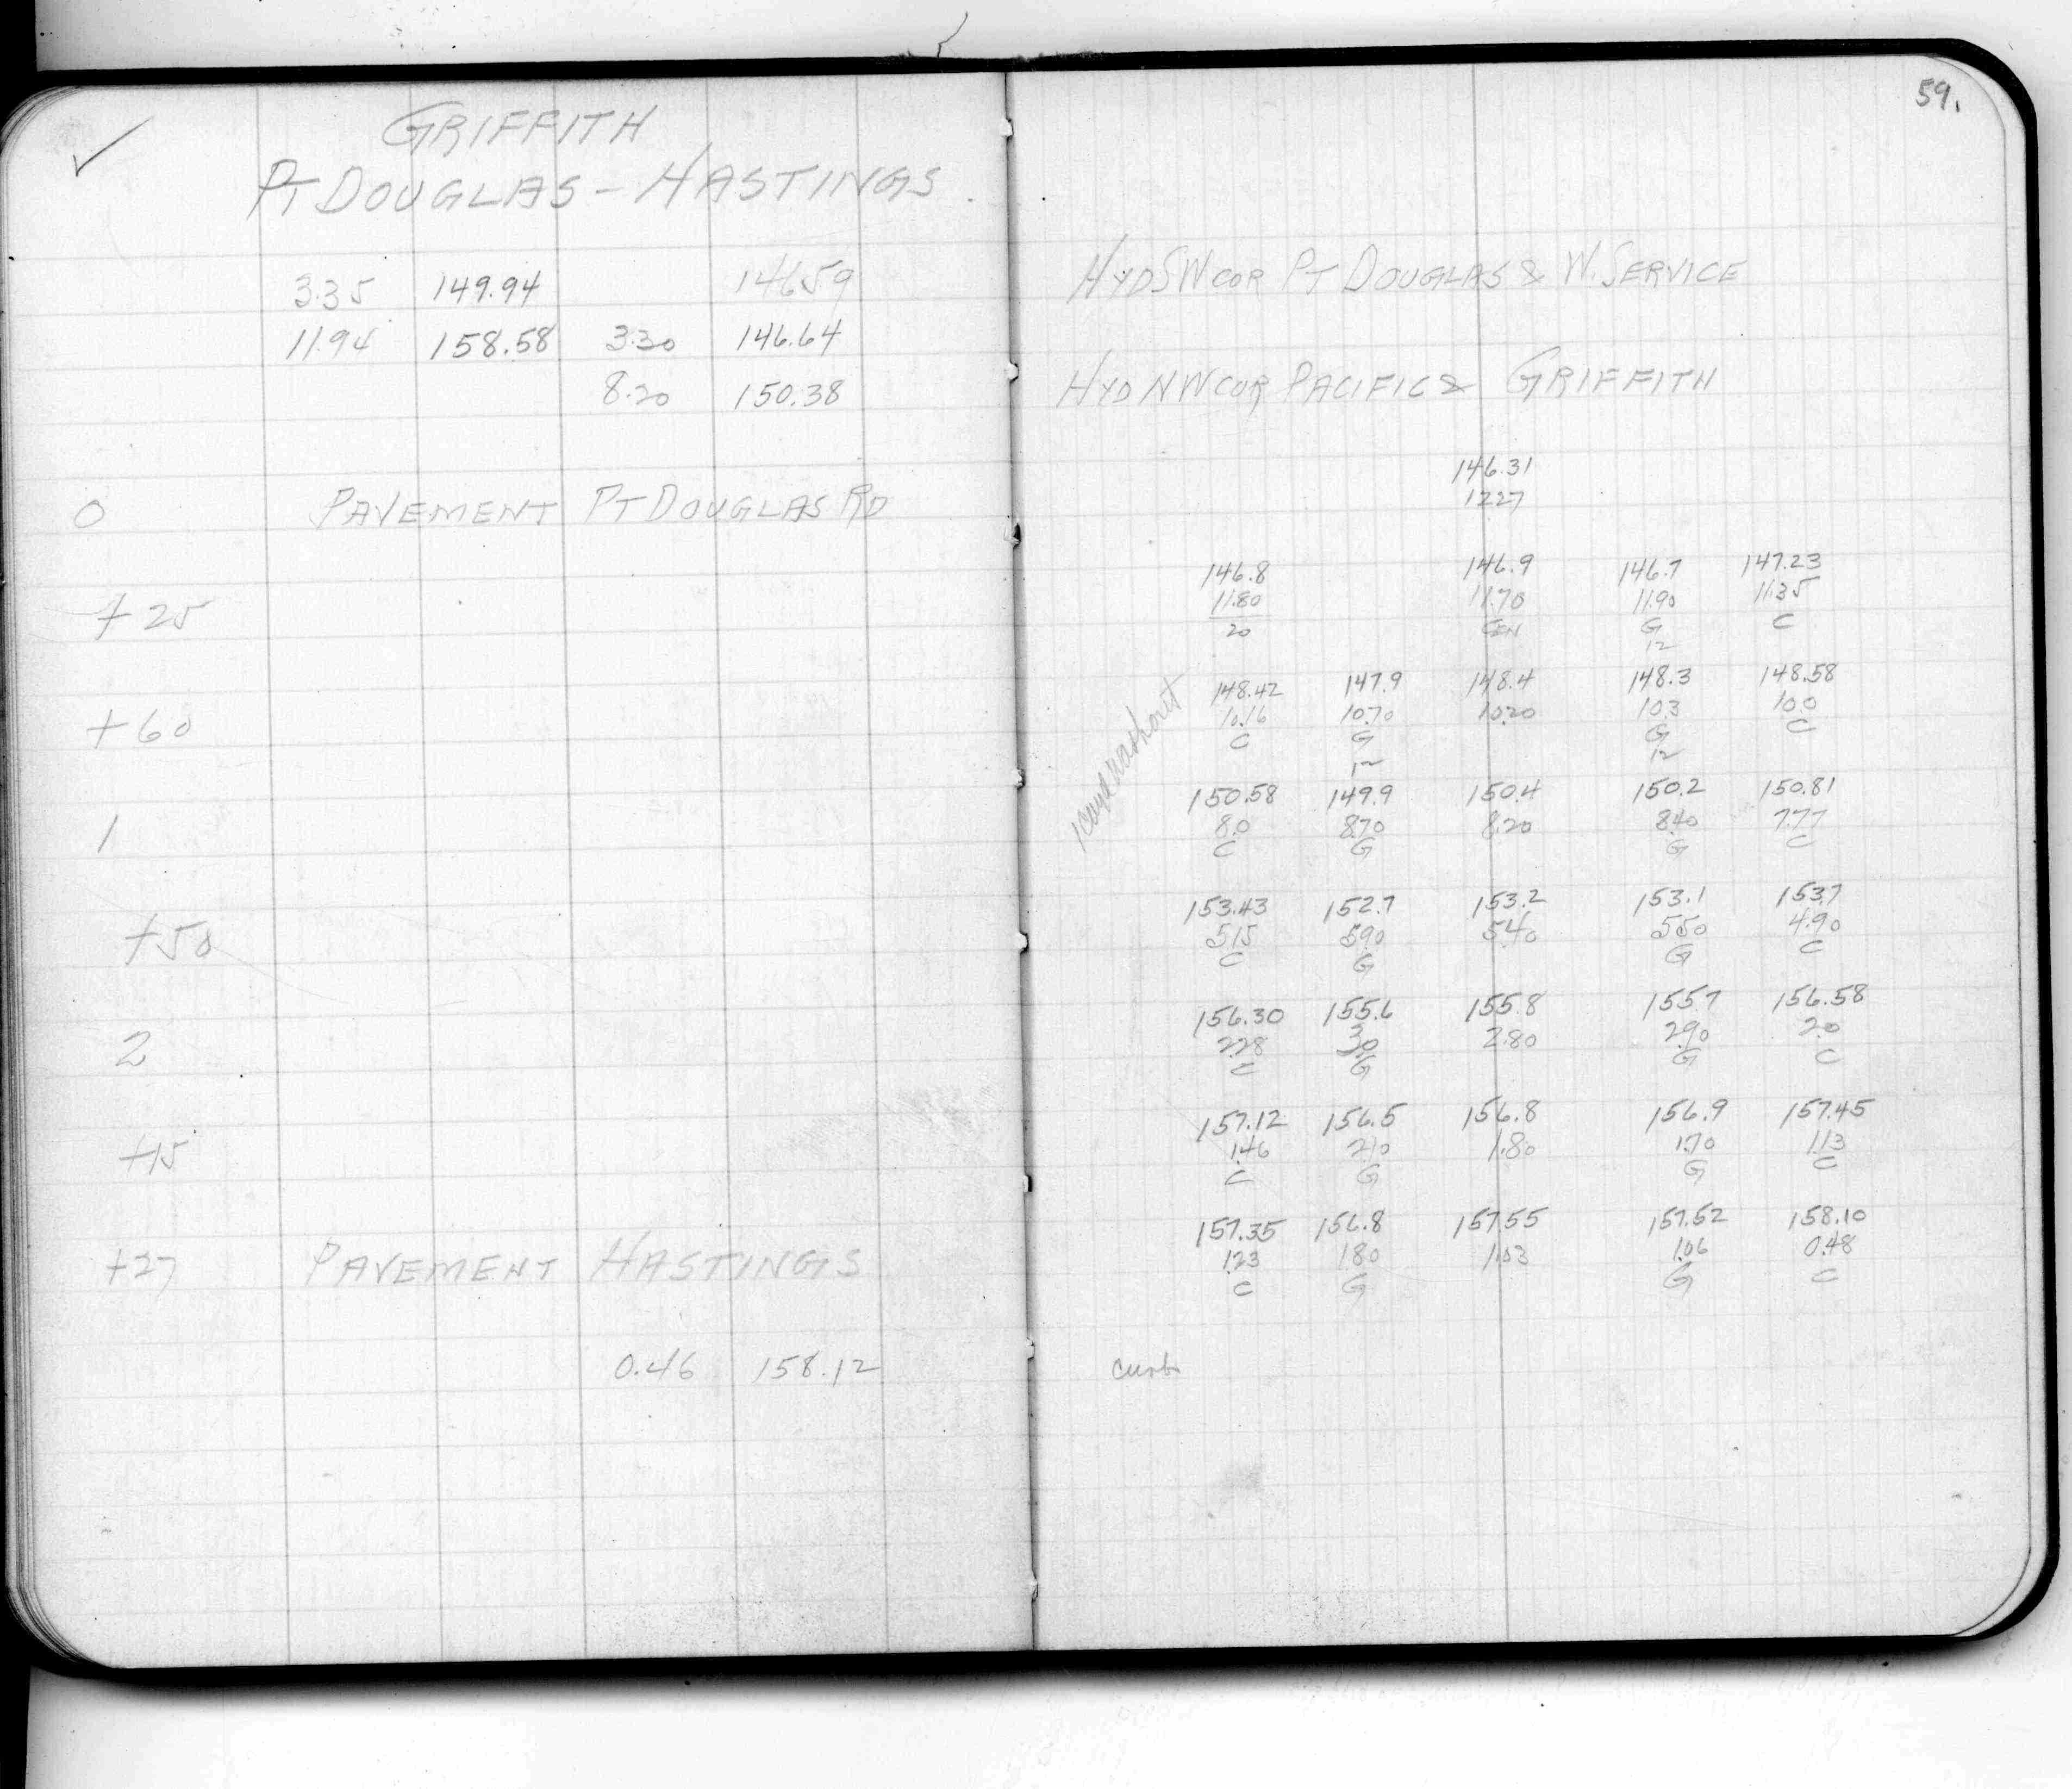 59.
✓ GRIFFITH
PT DOUGLAS - HASTINGS
3.35 149.94 146.59
11.94 158.58 3.30 146.64
8.20 150.38
0 PAVEMENT PT DOUGLAS RD
+25
+60
1
+50
2
+15
+27 PAVEMENT HASTINGS
0.46 158.12
HYD SW COR PT DOUGLAS & W. SERVICE
HYD NW COR PACIFIC & GRIFFITH
146.31
12.27
146.8 146.9 146.7 147.23
11.80 11.70 11.90 11.35
20 CEN G C
12
148.42 147.9 148.4 148.3 148.58
10.16 10.70 10.20 10.3 10.0
C G G C
12 12
washout
150.58 149.9 150.4 150.2 150.81
8.0 8.70 8.20 8.40 7.77
C G G C
153.43 152.7 153.2 153.1 153.7
5.15 5.90 5.40 5.50 4.90
C G G C
156.30 155.6 155.8 155.7 156.58
2.28 3.0 2.80 2.90 2.0
C G G C
157.12 156.5 156.8 156.9 157.45
1.46 2.10 1.80 1.70 1.13
C G G C
157.35 156.8 157.55 157.52 158.10
1.23 1.80 1.03 1.06 0.48
C G G C
curb